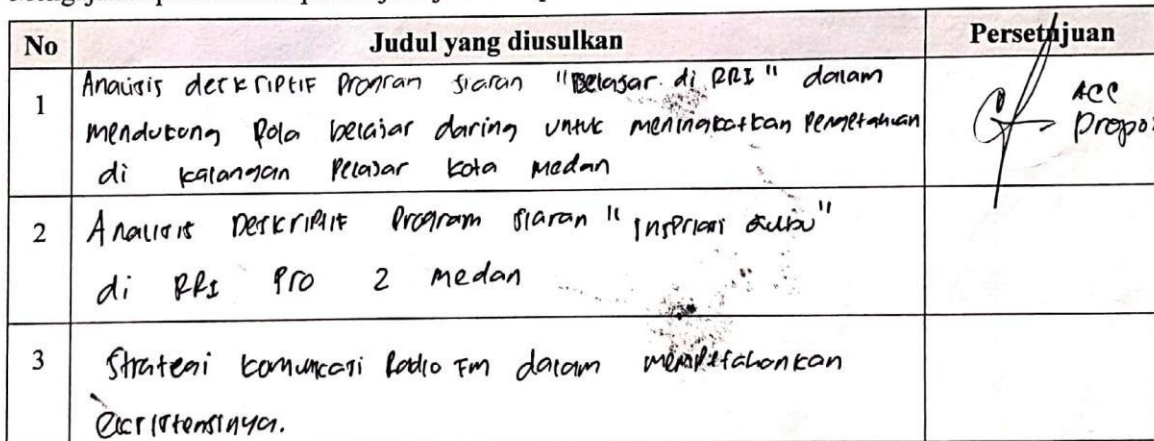 No Judul yang diusulkan Persetujuan
1 Analisis deskriptif Program siaran "Belajar di RRI" dalam
mendukung Pola belajar daring untuk meningkatkan Pengetahuan
di kalangan Pelajar Kota Medan
ACC
Propos
2 Analisis Deskriptif Program siaran " Inspirasi "
di RRI Pro 2 Medan
3 Strategi komunikasi Radio Fm dalam mempertahankan
eksistensinya.